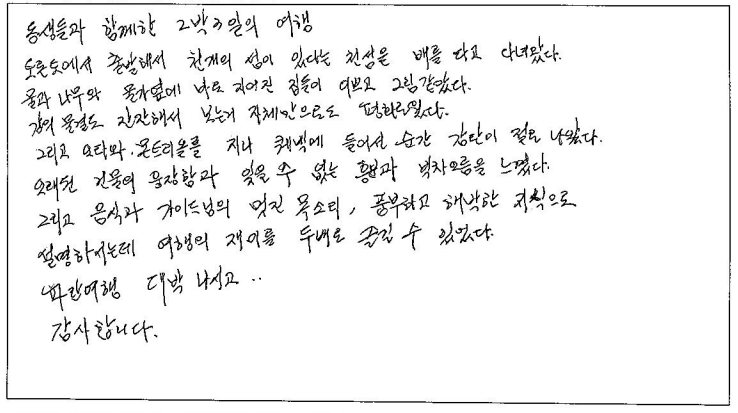 동생들과 함께한 2박3일의 여행
토론토에서 출발해서 천개의 섬이 있다는 천섬을 배를 타고 다녀왔다.
물과 나무와 물가옆에 바로 지어진 집들이 이쁘고 그림같았다.
강의 물결도 잔잔해서 보는거 자체만으로도 평화로웠다.
그리고 오타와·몬트리올를 지나 퀘벡에 들어선 순간 감탄이 절로 나왔다.
오래된 건물의 웅장함과 잊을 수 없는 과 벅차오름을 느꼈다.
그리고 음식과 가이드님의 멋진 목소리, 풍부하고 해박한 지식으로
설명하시는데 여행의 재미를 두배로 즐길 수 있었다.
파란여행 대박 나시고..
감사합니다.